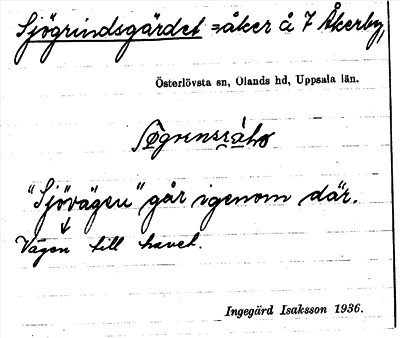 Sjögrindsgärdet =åker å 7 Åkerby,
Österlövsta sn, Olands hd, Uppsala län.
"Sjövägen" går igenom där.
Vägen till havet.
Ingegärd Isaksson 1936.